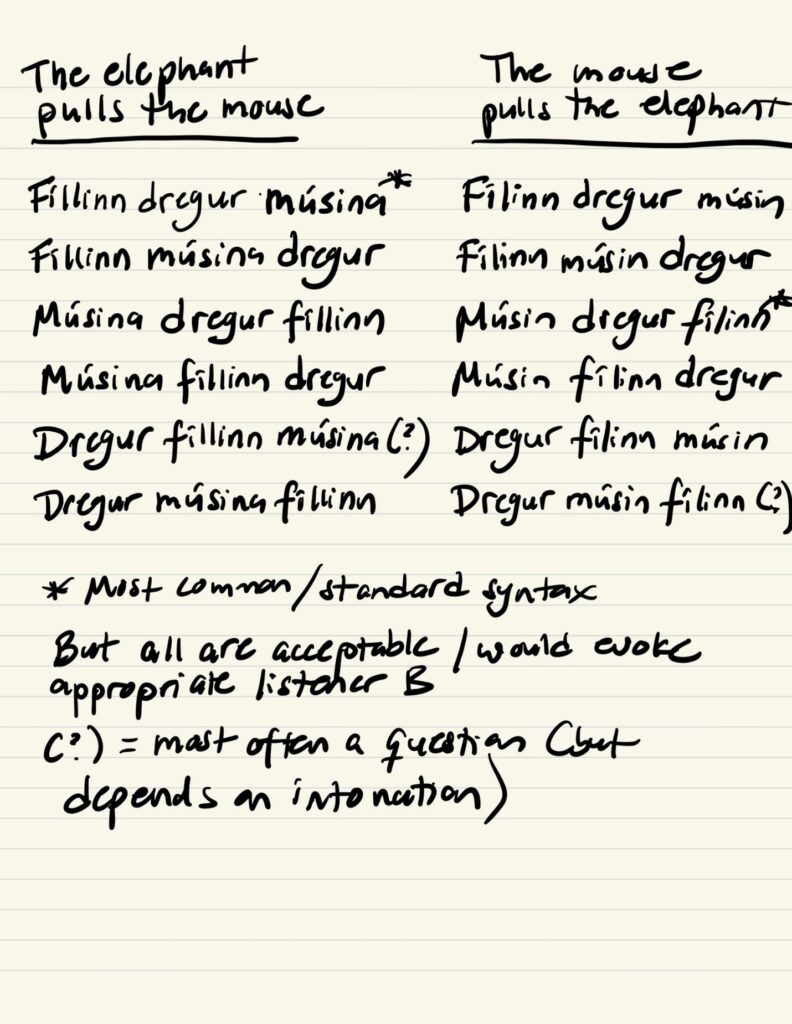 The elephant
pulls the mouse
The mouse
pulls the elephant
Fíllinn dregur músina*
Fíllinn músina dregur
Músina dregur fíllinn
Músina fíllinn dregur
Dregur fíllinn músina (?)
Dregur músina fíllinn
Fílinn dregur músin
Fílinn músin dregur
Músin dregur fílinn*
Músin fílinn dregur
Dregur fílinn músin
Dregur músin fílinn (?)
* Most common/standard syntax
But all are acceptable / would evoke
appropriate listener B
(?) = most often a question (but
depends on intonation)